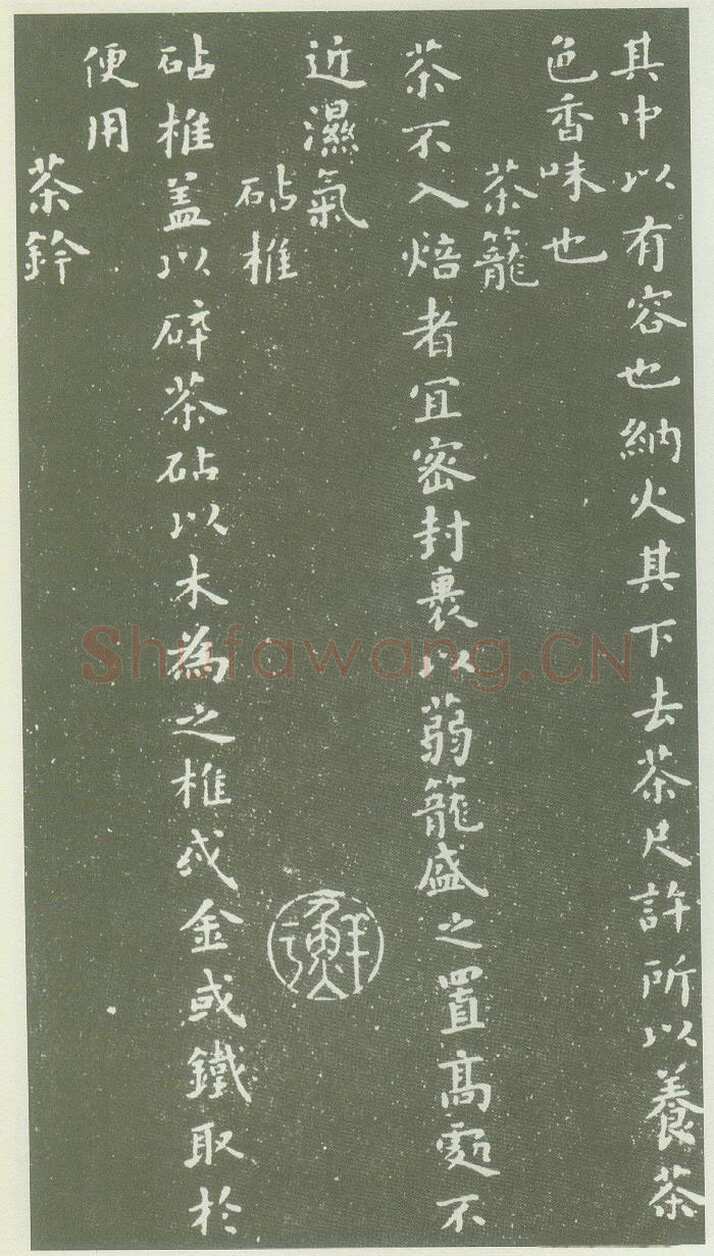 其中以有容也納火其下去茶尺許所以養茶
色香味也
茶籠
茶不入焙者宜密封裹以蒻籠盛之置高處不
近濕氣
砧椎
砧椎蓋以碎茶砧以木為之椎或金或鐵取於
便用
茶鈐
Shufawang.CN